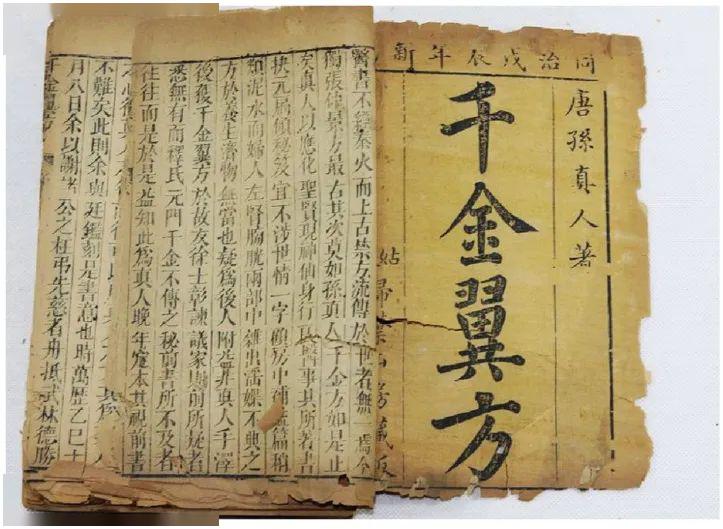 同治戊辰年新
唐孫真人著
千金翼方
山房藏版
醫書不經秦火而上古禁方流傳於世者無一焉今
獨張 景方最古其次莫如孫真人千金方如是止
矣真人以應化聖賢現神仙身行 醫事其所著書
抉元扃傾秘笈宜不涉世情一字顧房中補益篇稍
類泥水而婦人左腎胸胱兩部中雜出淫媟不典之
方於養生濟物無當也疑為後人附益非真人 澤
後獲千金翼方於故友徐士彰諫議家則前所疑者
悉無有而釋氏元門千金不傳之秘前書所不及者
往往而是於是益知此為真人晚年定本其視前書
不難矣此則余與廷鑑刻是書意也時萬歷乙巳十
月八日余以謝諸公之枉弔先慈者舟抵武林德勝